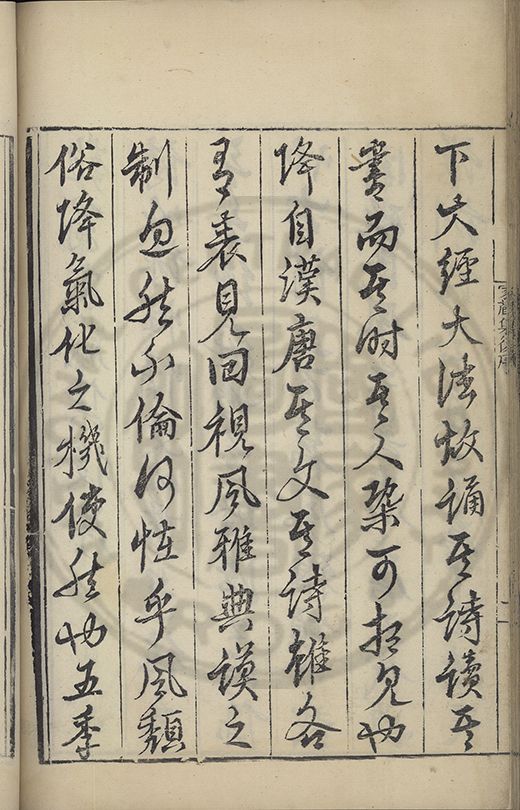 下大經大法故誦其詩讀其
書而其時其人槩可想見也
降自漢唐其文其詩雖各
有表見回視風雅典謨之
制迥然不倫何怪乎風頹
俗降氣化之機使然也五季